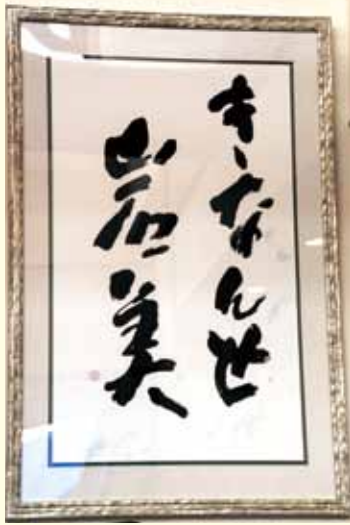 きなんせ
岩美